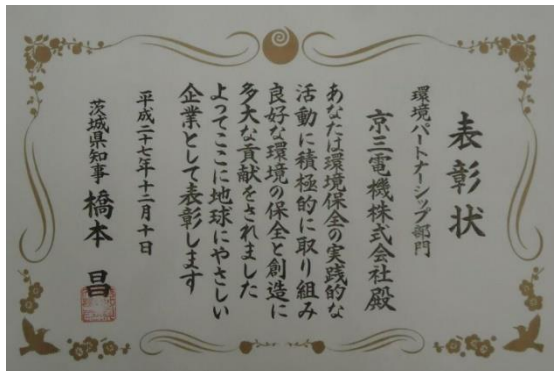 表彰状
環境パートナーシップ部門
京三電機株式会社殿
あなたは環境保全の実践的な
活動に積極的に取り組み
良好な環境の保全と創造に
多大な貢献をされました
よってここに地球にやさしい
企業として表彰します
平成二十七年十二月十日
茨城県知事 橋本 昌